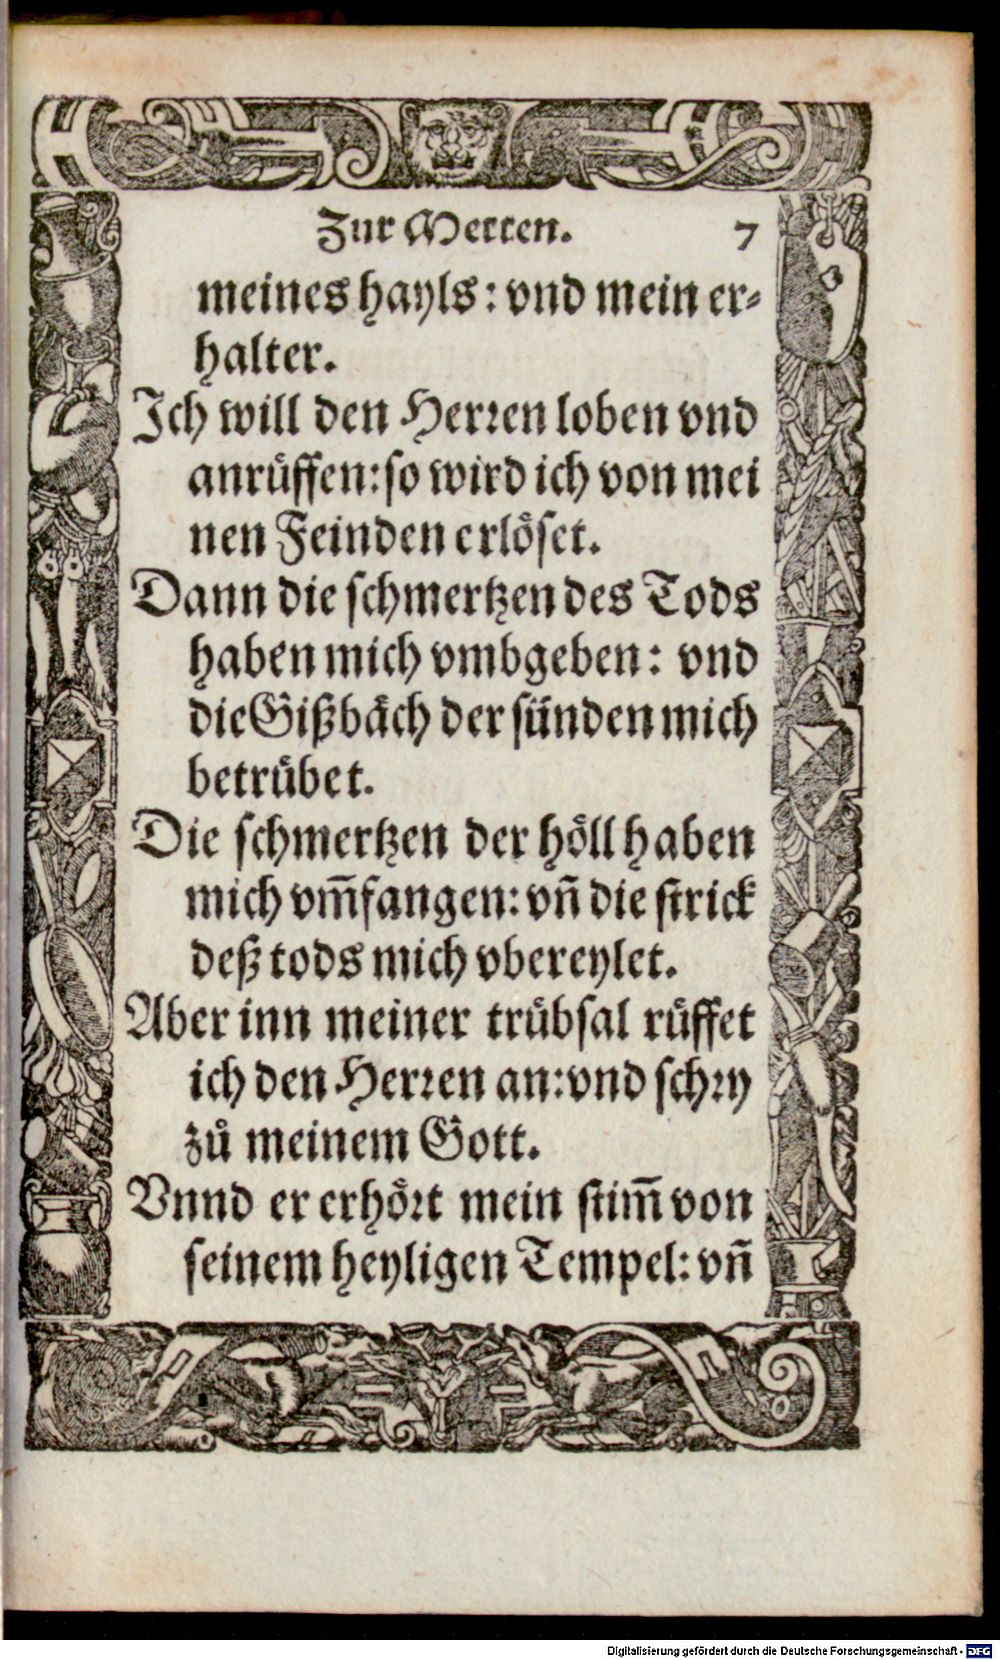 Zur Metten. 7
meines hayls: vnd mein er-
halter.
Ich will den Herren loben vnd
anrüffen: so wird ich von mei
nen Feinden erlöset.
Dann die schmertzen des Tods
haben mich vmbgeben: vnd
die Gißbäch der sünden mich
betrübet.
Die schmertzen der höll haben
mich vm̃fangen: vñ die strick
deß tods mich vbereylet.
Aber inn meiner trübsal rüffet
ich den Herren an: vnd schry
zů meinem Gott.
Vnnd er erhört mein stim̃ von
seinem heyligen Tempel: vñ
Digitalisierung gefördert durch die Deutsche Forschungsgemeinschaft - DFG